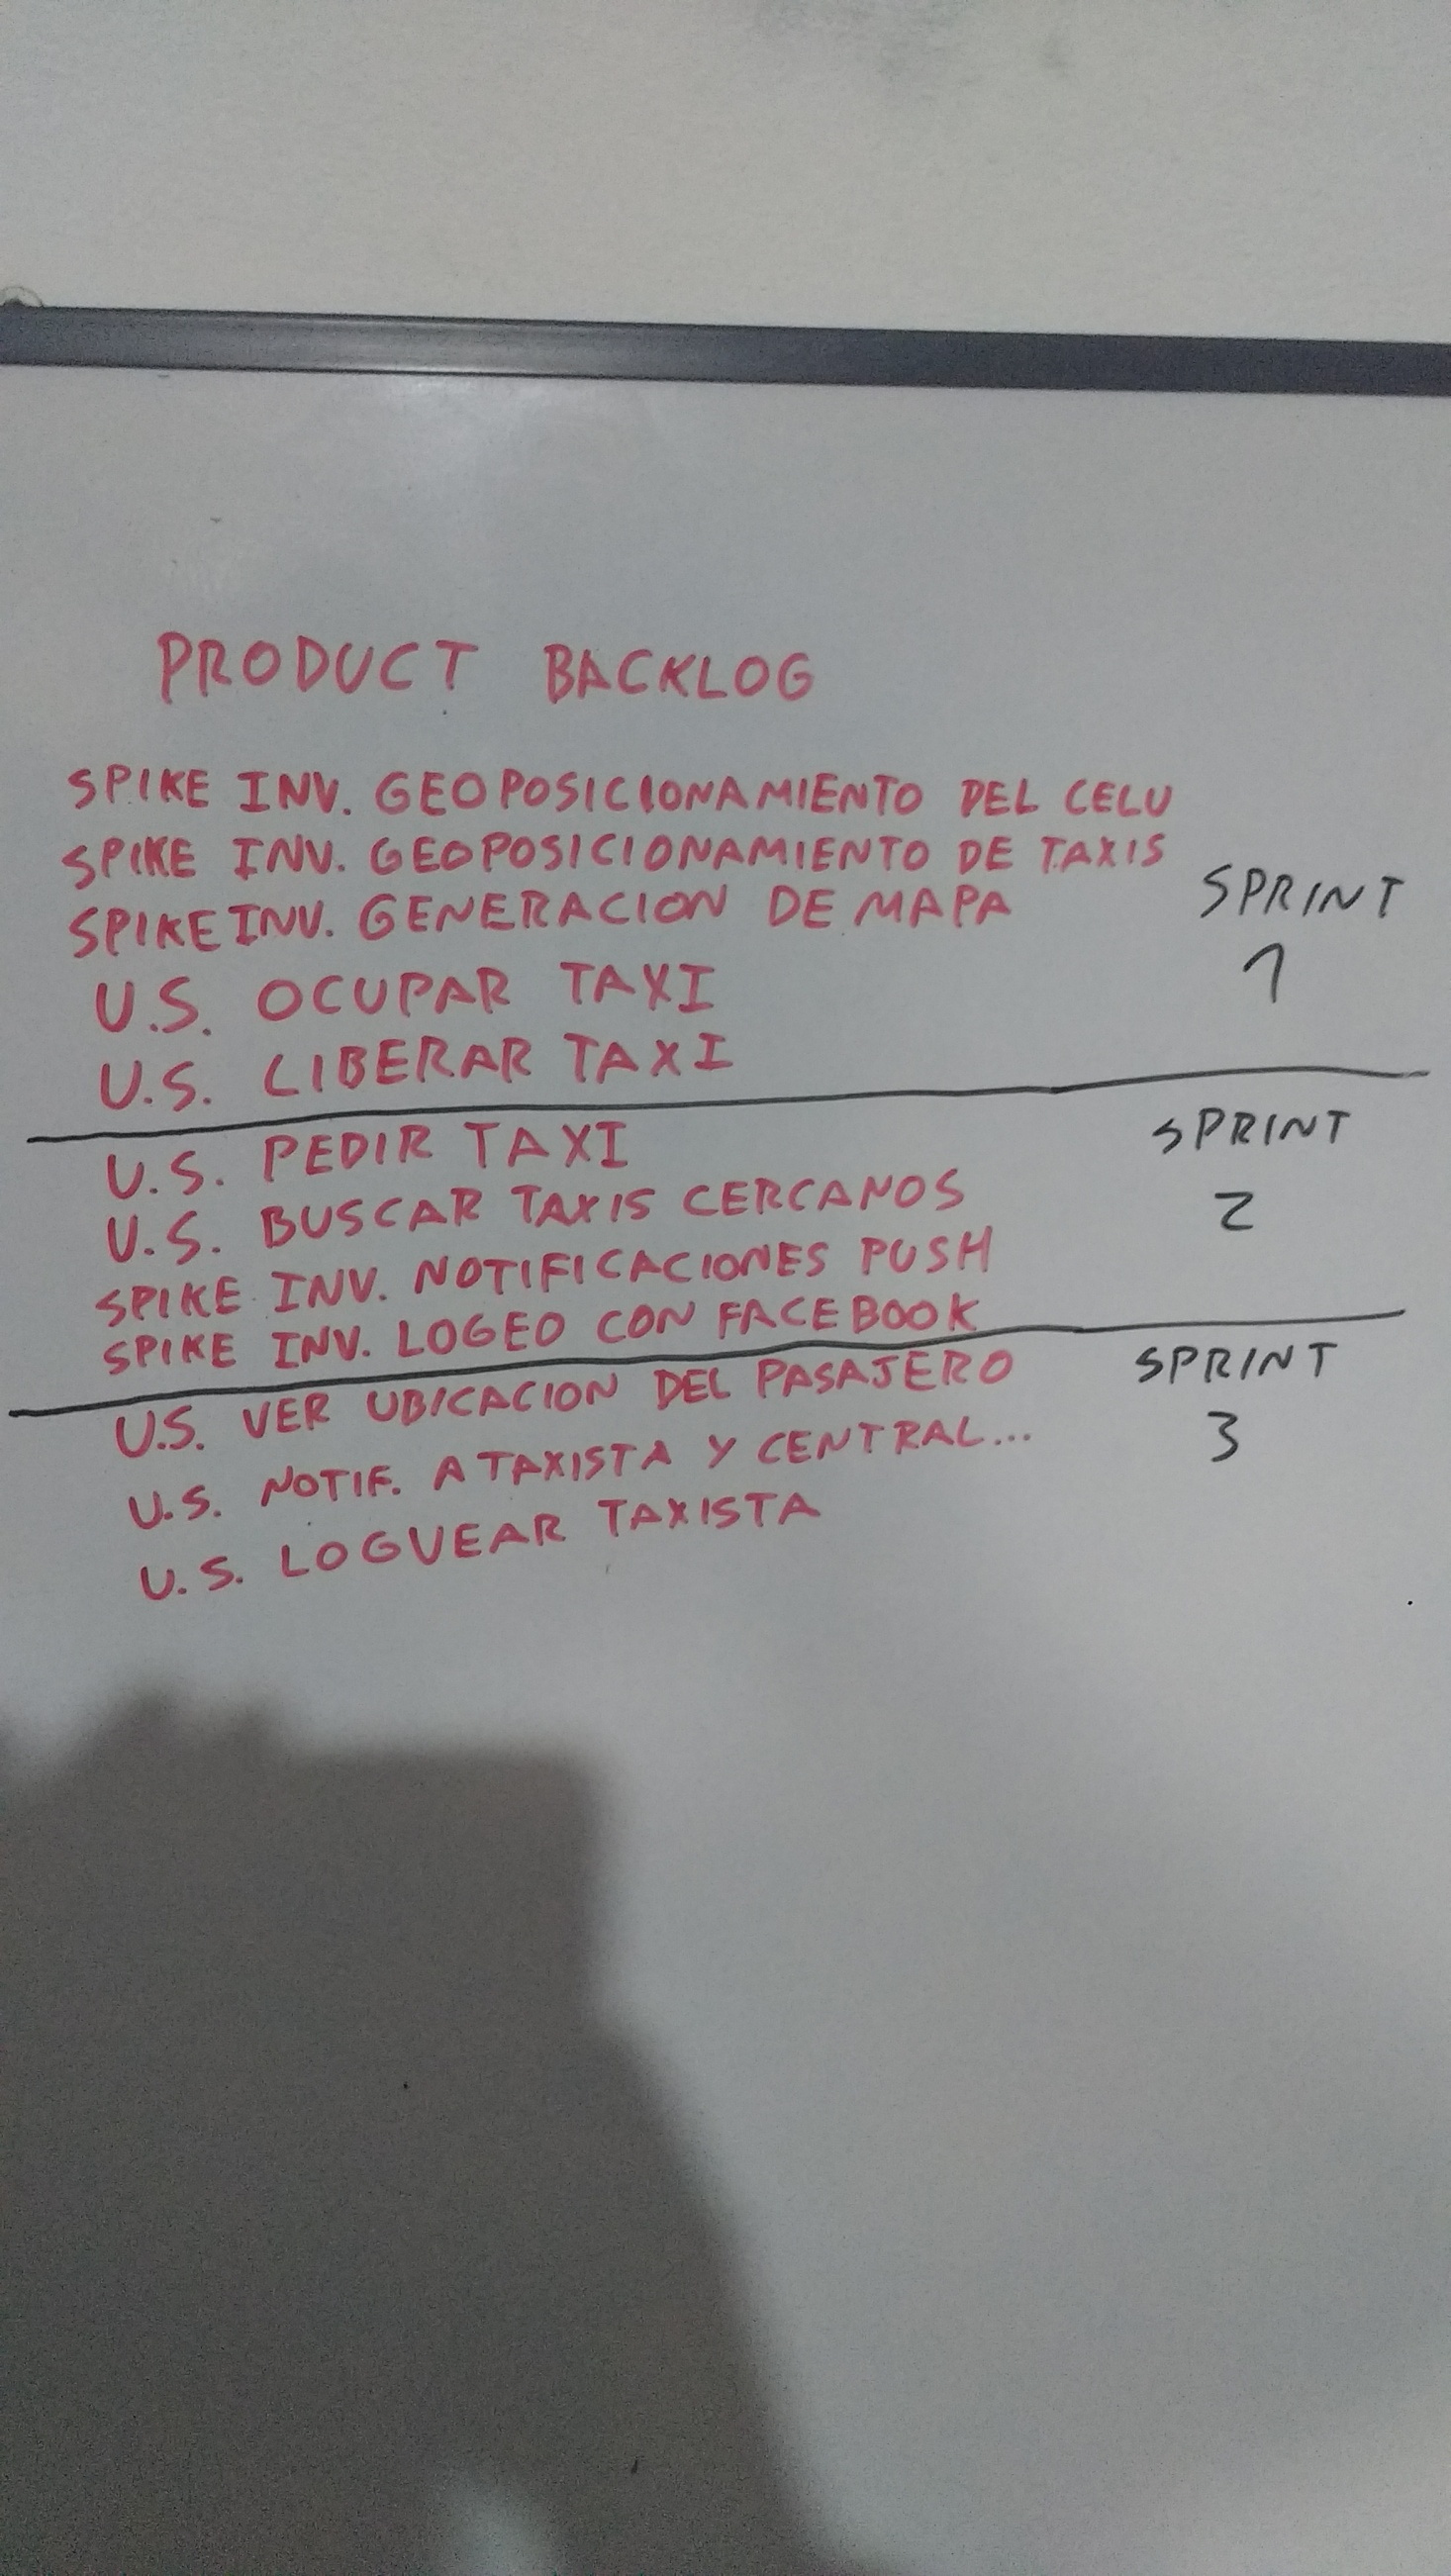 PRODUCT BACKLOG
SPIKE INV. GEOPOSICIONAMIENTO DEL CELU
SPIKE INV. GEOPOSICIONAMIENTO DE TAXIS
SPIKE INV. GENERACION DE MAPA
SPRINT
1
U.S. OCUPAR TAXI
U.S. LIBERAR TAXI
U.S. PEDIR TAXI
SPRINT
2
U.S. BUSCAR TAXIS CERCANOS
SPIKE INV. NOTIFICACIONES PUSH
SPIKE INV. LOGEO CON FACEBOOK
U.S. VER UBICACION DEL PASAJERO
SPRINT
3
U.S. NOTIF. A TAXISTA Y CENTRAL...
U.S. LOGUEAR TAXISTA